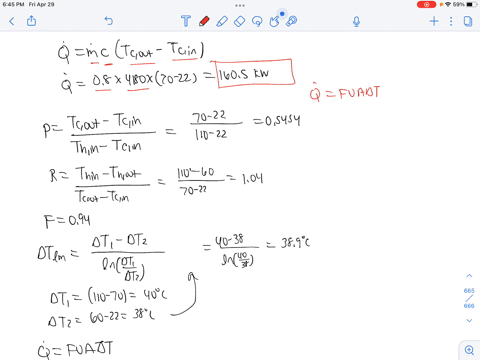 6:45 PM Fri Apr 29
59%
Q̇ = ṁ c (Tc,out − Tc,in)
Q̇ = 0.8 × 480 × (70-22) = 160.5 kW
Q̇ = FUADT
P = Tc,out − Tc,in / Th,in − Tc,in = 70-22 / 110-22 = 0.5454
R = Thin − Th,out / Tcout − Tc,in = 110-60 / 70-22 = 1.04
F = 0.94
ΔTlm = ΔT1 − ΔT2 / ln(ΔT1/ΔT2) = 40-38 / ln(40/38) = 38.9°C
ΔT1 = (110-70) = 40°C
ΔT2 = 60-22 = 38°C
Q̇ = FUADT
665
/
666